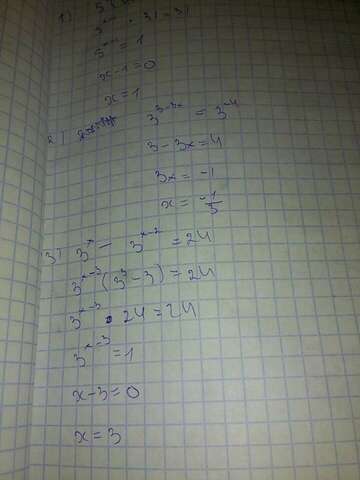 1)
· 31 = 31
5ˣ⁻¹ = 1
x-1=0
x=1
2) 3³⁻³ˣ = 3⁻⁴
3-3x=4
3x = -1
x = -1/3
3) 3ˣ - 3ˣ⁻² = 24
3ˣ⁻³(3³-3) = 24
3ˣ⁻³ · 24 = 24
3ˣ⁻³ = 1
x-3=0
x=3